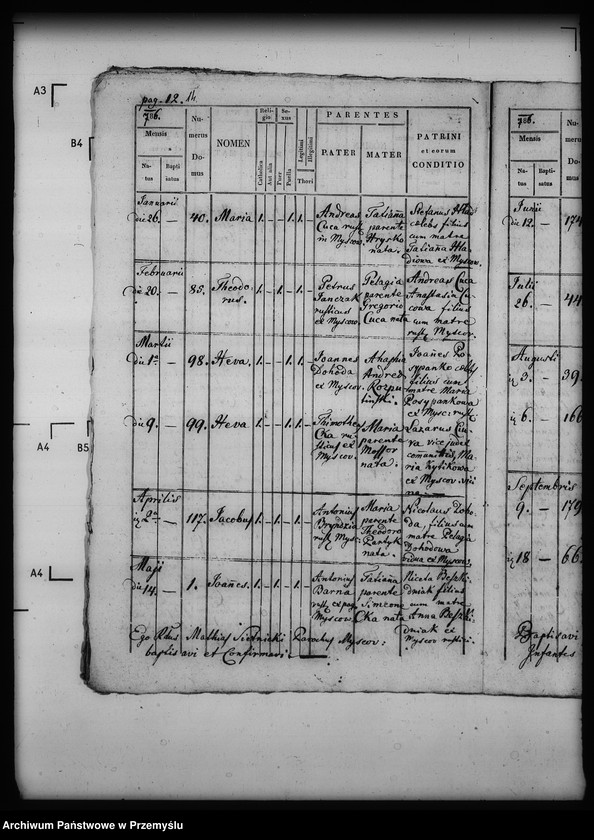 A3
B4
A4
B5
A4
pag. 12. 14.
786.
Mensis
Na-
tus
Bapti
satus
Nu-
merus
Do-
mus
NOMEN
Reli-
gio
Catholica
Aut alia
Se-
xus
Puer
Puella
Legitimi
Illegitimi
Thori
PARENTES
PATER
MATER
PATRINI
et eorum
CONDITIO
Januarii
die 26. —
40.
Maria
1. — — 1. 1.
Andreas
Cuca rust:
in Myscow.
Tatiana
parente
Hrysko
nata.
Stefanus
celebs filius
cum matre
Tatiana Hla
diowa ex Myscow.
Februarii
die 20. —
85.
Theodo-
rus.
1. — 1. — 1.
Petrus
Janczak
rusticus
ex Myscow.
Pelagia
parente
Gregorio
Cuca nata
Andreas Cuca
Anastasia Cu
cowa filius
cum matre
rust: Myscow.
Martii
die 1a —
98.
Heva.
1. — — 1. 1.
Joannes
Dohoda
ex Myscow.
Ahaphia
Andrea
Joanes Po
sypanko celebs
filius cum
matre Maria
Posypankowa
ex Mysc: rust:
die 9. —
99.
Heva
1. — — 1. 1.
Thimotheus
Cka ru-
sticus ex
Myscow.
Maria
parente
nata.
Lazarus
vice judex
Ma
ria
ex Myscow
na
Aprilis
2a —
117.
Jacobus
1. — 1. — 1.
Antonius
rust: Mysc:
Maria
parente
Theodoro
nata.
Nicolaus Doho
da, filius cum
matre Pelagia
Dohodowa
vidua ex Myscow.
Maji
die 14. —
1.
Joanes.
1. — 1. — 1.
Antonius
Barna
rust: ex pago
Myscow
Tatiana
parente
Simeone
Cka nata
Niceta Beski
dniak filius
cum matre
Anna Beski
dniak ex
Myscow rustici.
Ego Rdus Mathias Sietnicki Parochus Myscov:
baptisavi et Confirmavi
786.
Mensis
Na-
tus
Bapti-
satus
Nu-
merus
Do-
mus
Junii
die 12. — 174
Julii
26. — 44
Augusti
3. — 39.
6. — 166
Septembris
9. — 179
18 — 66.
Baptisavi
Infantes
Archiwum Państwowe w Przemyślu